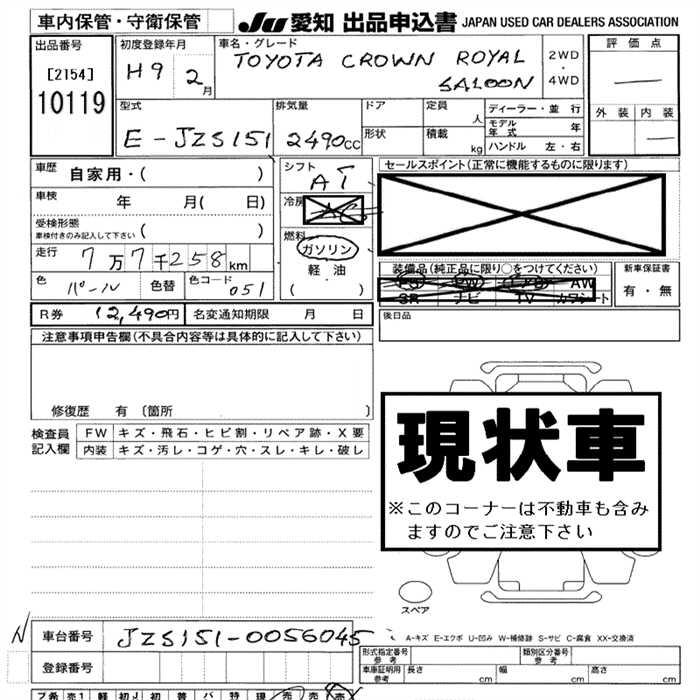 車内保管・守衛保管
JU 愛知 出品申込書 JAPAN USED CAR DEALERS ASSOCIATION
出品番号 初度登録年月 車名・グレード 評価点
[2154] H9 2月 TOYOTA CROWN ROYAL 2WD
10119 SALOON 4WD
外装 内装
型式 排気量 ドア 定員 人 ディーラー・並行
E-JZS151 2490cc 形状 積載 kg モデル年式 年
ハンドル 左・右
車歴 自家用・( ) シフト AT セールスポイント(正常に機能するものに限ります)
車検 年 月( 日) 冷房 AC
受検形態
車検付きのみ記入して下さい ( ) 燃料 ガソリン
走行 7万7千258km 軽油 装備品(純正品に限り○をつけてください) 新車保証書
色 パール 色替 色コード 051 ( ) PS PW AW 有・無
SR ナビ TV カワシート
R券 12,490円 名変通知期限 月 日 後日品
注意事項申告欄(不具合内容等は具体的に記入して下さい)
修復歴 有 〔箇所 〕
検査員記入欄 FW キズ・飛石・ヒビ割・リペア跡・X要
内装 キズ・汚レ・コゲ・穴・スレ・キレ・破レ
現状車
※このコーナーは不動車も含み
ますのでご注意下さい
スペア
N 車台番号 JZS151-0056045 A-キズ E-エクボ U-凹み W-補修跡 S-サビ C-腐食 XX-交換済
登録番号 形式指定番号 参考 類別区分番号 参考
車庫証明用 参考 長さ 幅 高さ